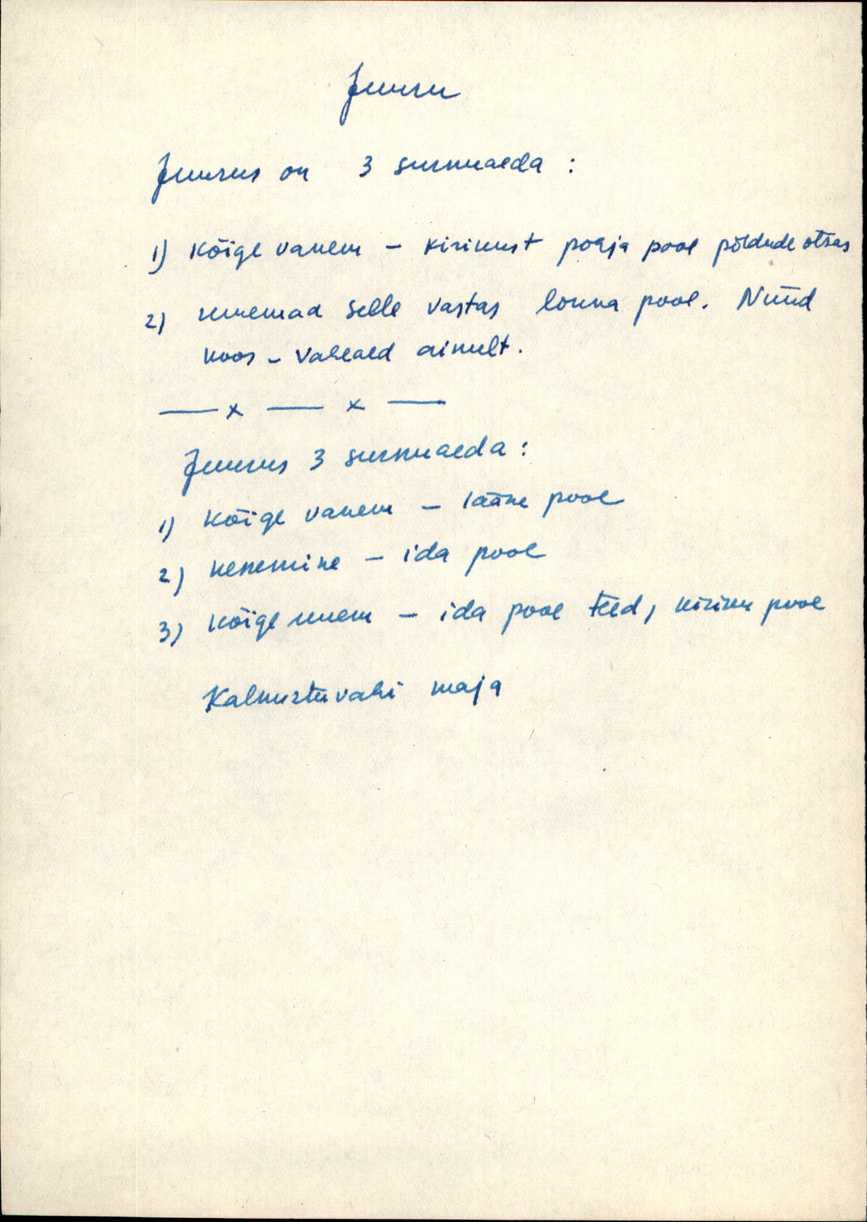 Juuru
Juurus on 3 surnuaeda :
1) Kõige vanem – kirikust põhja pool põldude otsas
2) uuemad selle vastas lõuna pool. Nüüd
koos – vaheaed ainult.
— x — x —
Juurus 3 surnuaeda :
1) Kõige vanem – lääne pool
2) keskmine – ida pool
3) Kõige uuem – ida pool teed, kiriku pool
Kalmistuvahi maja